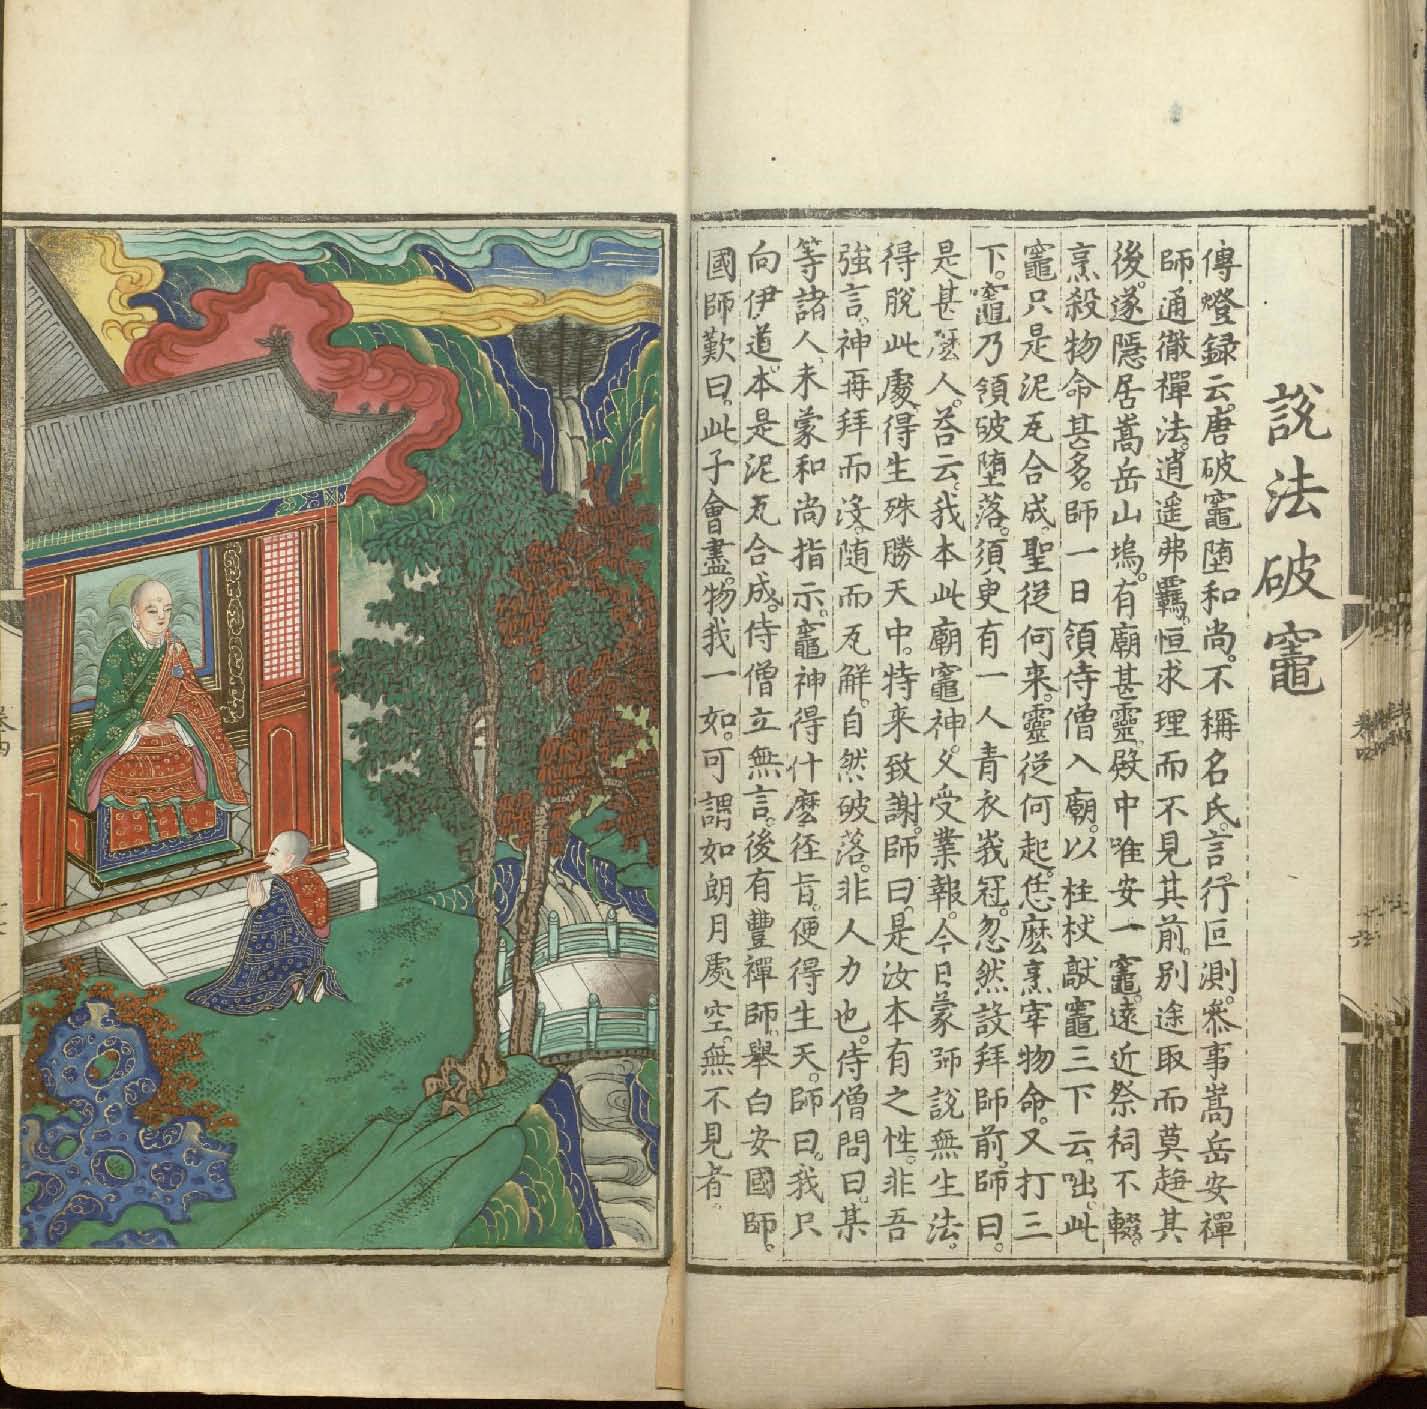 說法破竈
傳燈録云。唐破竈堕和尚。不稱名氏。言行叵測。叅事嵩岳安禪
師。通徹禪法。逍遥弗覊。恒求理而不見其前。别途取而莫趂其
後。遂隱居嵩岳山塢。有廟甚靈。殿中唯安一竈。遠近祭祠不輟。
烹殺物命甚多。師一日領侍僧入廟。以柱杖敲竈三下云。咄。此
竈只是泥瓦合成。聖從何来。靈從何起。恁麽烹宰物命。又打三
下。竈乃領破堕落。須臾有一人青衣峩冠。忽然設拜師前。師曰。
是甚麽人。荅云。我本此廟竈神。乆受業報。今日蒙師說無生法。
得脫此處。得生殊勝天中。特来致謝。師曰。是汝本有之性。非吾
強言。神再拜而没。随而瓦解。自然破落。非人力也。侍僧問曰。某
等諸人。未蒙和尚指示。竈神得什麽徑旨。便得生天。師曰。我只
向伊道。本是泥瓦合成。侍僧立無言。後有豐禪師。舉白安國師。
國師歎曰。此子會盡。物我一如。可謂如朗月處空。無不見者。
卷四